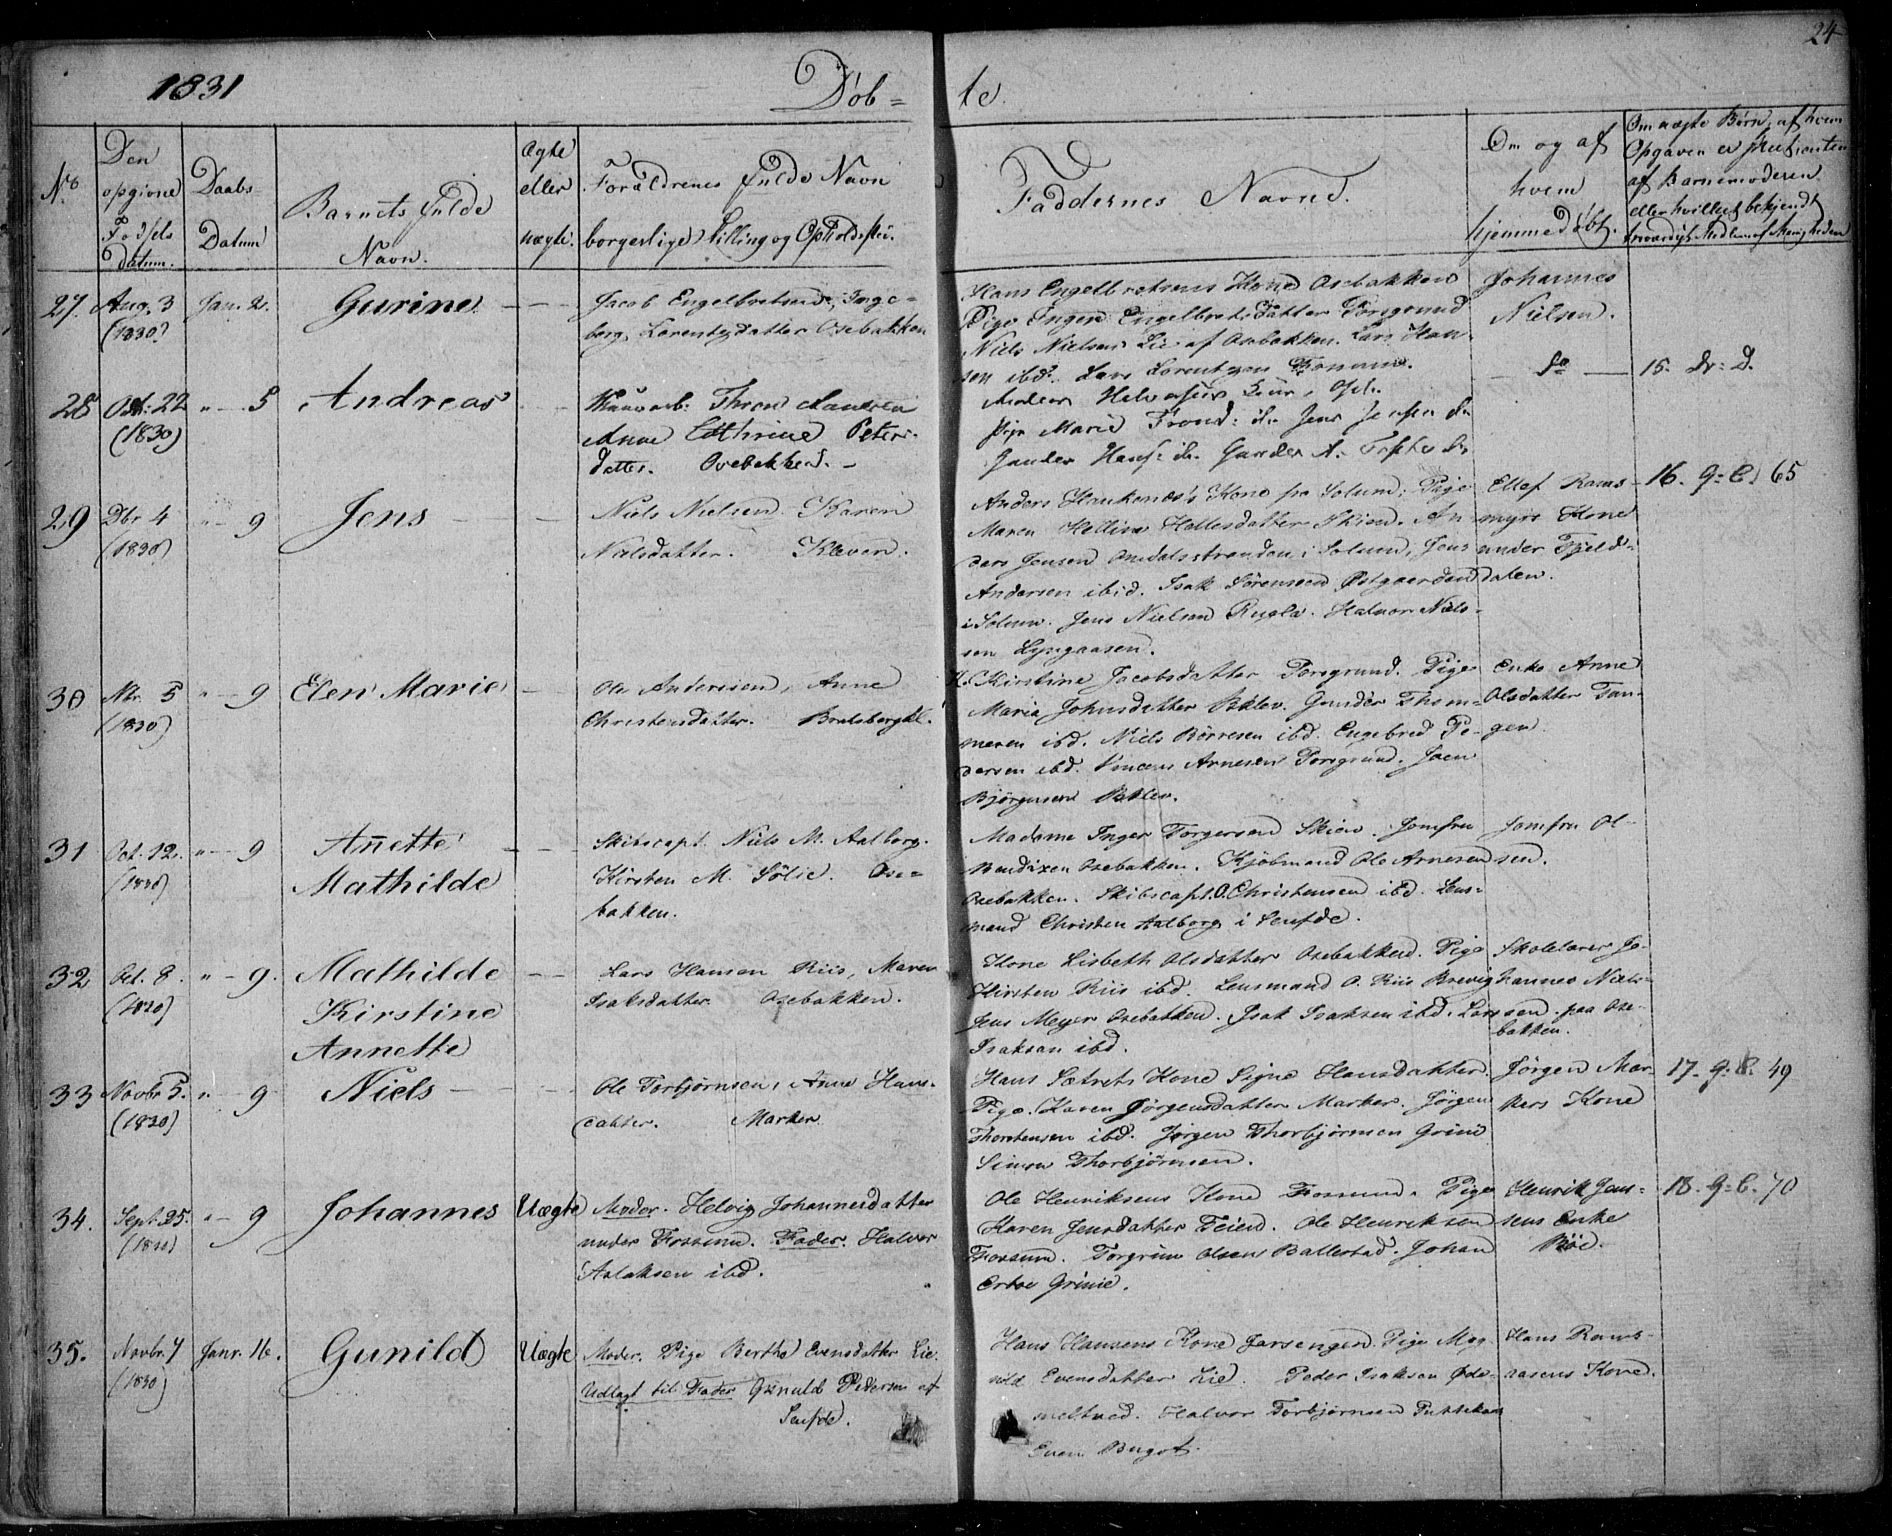 24
1831 Døb= te.
No
Den opgivne Fødsels datum.
Daabs Datum
Barnets fulde Navn.
Ægte eller uægte.
Forældrenes fulde Navn borgerlige Stilling og Opholdsted.
Faddernes Navne.
Om og af hvem hjemmedøbt.
Om uægte Børn, af hvem Opgaven er
af Barnemoderen eller hvilket bekjendt troværdigt Medlem af Menigheden
27. Aug. 3 (1830) Jan. 2. Gurine — —
Jacob Engelbretsen, Inge=
borg Lorentzdatter Osebakken
Hans Engelbretsens Kone Osebakken
Pige Inger Engelbretsdatter Porsgrund
Niels Nielsen Lie af Osebakken. Lars Han=
sen ibd. Lars Lorentzen
Johannes
Nielsen.
28 Oct: 22 (1830) " — 5 Andreas
Thron Hansen
Anne Cathrine Peters=
datter. Osebakken. —
Pige Marie Trond: do Jens Jensen do
Gunder Hans: do Gunder A.
— do — 15.
29 Dbr 4 (1830) " — 9 Jens — —
Niels Nielsen Karen
Nielsdatter. Kleven.
Anders Haukenes's Kone fra Solum, Pige
Maren Halvesdatter Skien. An=
ders Jensen Omdalsstranden i Solum, Jens
Andersen ibid. Isak Sørensen Østgaarden
i Solum. Jens Nielsen Rugla. Halvor Niels=
sen Lyngaasen.
Ellef Rams=
myrs Kone
under Fjeld=
dalen.
16. 9: C. 65
30 Nbr. 5 (1830) " — 9 Elen Marie —
Ole Andersen, Anne
Christensdatter. Bratsbergkl.
K. Kirstine Jacobsdatter Porsgrund. Pige
Maria Johnsdatter Bøhlev. Gunder Thom=
mesen ibd. Niels Børresen ibd. Engebred Pe=
dersen ibd. Vincens Arnesen Porsgrund. Joen
Bjørgusen Bøhlev.
Enke Anne
Olsdatter Tan=
gen
31 Oct. 12. (1830) " — 9 Anette
Mathilde — —
Skibscapt. Niels M. Aalborg.
Kirsten M. Sølie. Ose=
bakken.
Madame Inger Torgersen Skien. Jomfru
Bendixen Osebakken. Kjøbmand Ole Arnesen
Osebakken. Skibscapt. O. Christensen ibd. Lens=
mand Christen Aalborg i Skifde.
Jomfru Ol=
sen.
32 Oct. 8. (1830) " — 9. Mathilde
Kirstine
Annette — —
Lars Hansen Riis, Maren
Isaksdatter. Osebakken.
Kone Lisbeth Olsdatter Osebakken. Pige
Kirsten Riis ibd. Lensmand O. Riis Brevig
Jens Meyer Osebakken. Isak Isaksen ibd. Lars
Isaksen ibd.
Skolelærer Jo=
hannes Niels=
sen paa Ose=
bakken.
33 Novbr 5. (1830) " — 9 Niels — —
Ole Torbjørnsen, Anne Hans=
datter. Marker
Hans Sætrets Kone Signe Hansdatter.
Pige. Karen Jørgensdatter Marker. Jørgen
Thorstensen ibd. Jørgen Thorbjørnsen Grini
Simon Thorbjørnsen.
Jørgen Mar=
kers Kone
17. 9: B. 49
34. Sept. 25. (1830) " — 9 Johannes Uægte
Moder. Helvig Johannesdatter
under Fossum. Fader. Halvor
Aslaksen ibd.
Ole Henriksens Kone Fossum. Pige
Karen Jensdatter Feien. Ole Henriksen
Fossum. Torgrim Olsen Ballestad. Johan
Grinie.
Henrik Jens=
sens Enke
Røe.
18. 9: C. 70
35. Novbr. 7 (1830) Janr. 16. Gunild Uægte
Moder. Pige Berthe Evensdatter Lie.
Udlagt til Fader Gunuld Pedersen af
Skifde.
Hans Hansens Kone Jarseng. Pige Mag=
nild Evensdatter Lie. Peder Isaksen Øde=
meltved. Halvor Torbjørnsen
Even Bugot.
Hans Rams=
aasens Kone.